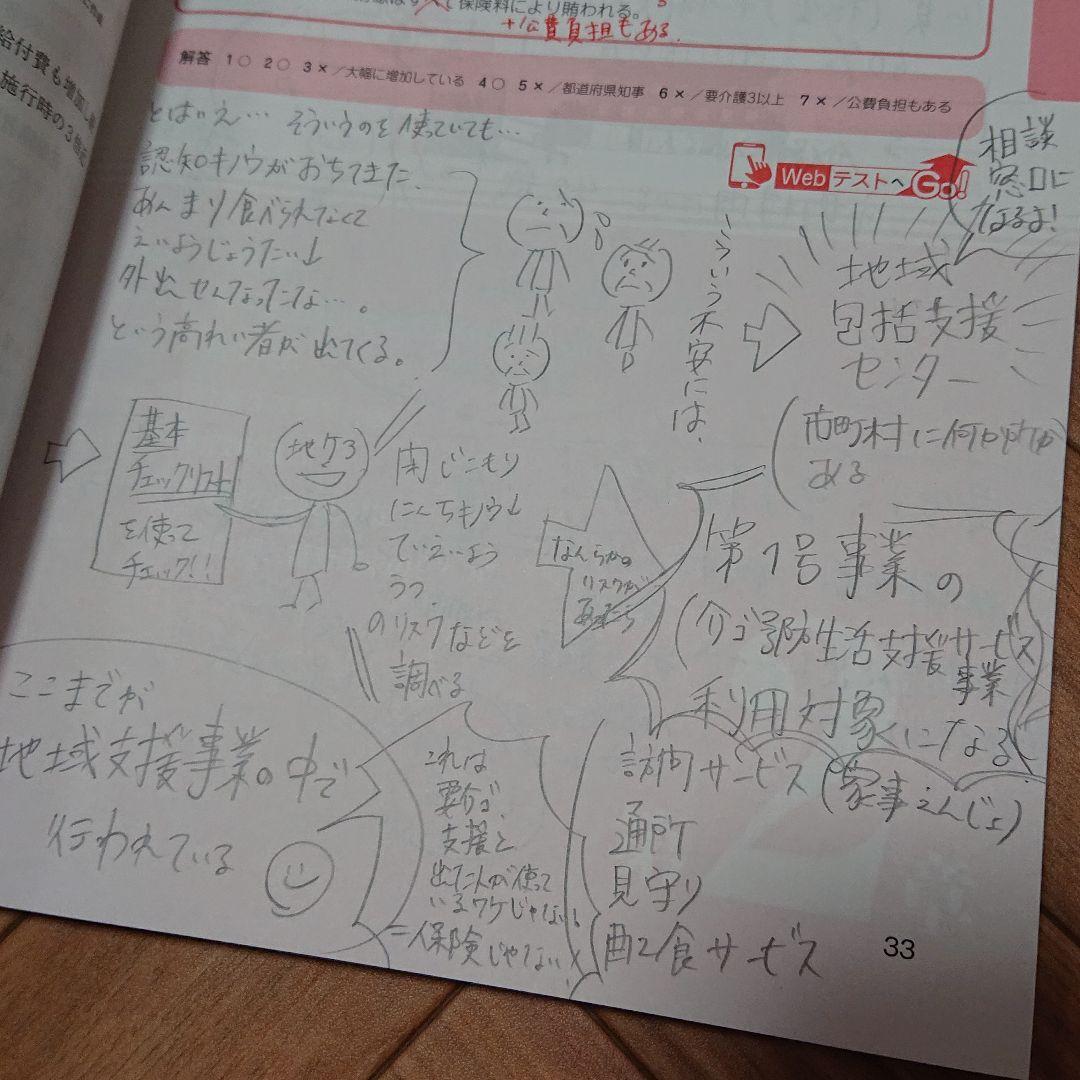 給付費も増加し
施行時の3倍
保険料により賄われる。
+公費負担もある。
解答 1○ 2○ 3×／大幅に増加している 4○ 5×／都道府県知事 6×／要介護3以上 7×／公費負担もある
Webテストへ Go!
とはいえ… そういうのを使っていても…
認知キノウがおちてきた、
あんまり食べられてなくて
えいようじょうたい↓
外出せんなったな…。
という高れい者が出てくる。
こういう不安には、
地域
包括支援
センター
相談
窓口に
なるよ!
(市町村に何か所か
ある
基本
チェックリスト
を使って
チェック!!
地ケア
閉じこもり
にんちキノウ↓
ていえいよう
うつ
のリスクなどを
調べる
なんらかの
リスクが
あったら
第1号事業の
(介ゴ予防生活支援サービス
事業
利用対象になる
訪問サービス(家事えんじょ)
通所
見守り
配食サービス
これは
要介ゴ、
支援と
出た人が使って
いるワケじゃない!
=保険じゃない
ここまでが
地域支援事業の中で
行われている
33